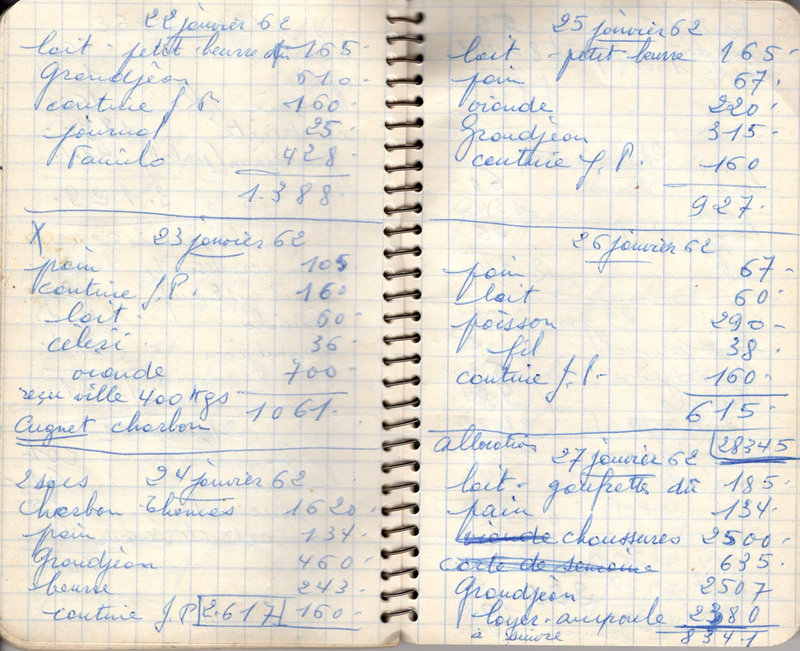 22 janvier 62
lait - petit-beurre 165-
Grandjean 610-
cantine J.P. 160-
journal 25-
428-
1.388-
X 23 janvier 62
pain 105
cantine J.P. 160
lait 60-
céleri 36-
viande 700-
reçu ville 400 kgs
1061-
Cugnet charbon
2 sacs 24 janvier 62
charbon Thomas 1620-
pain 134-
Grandjean 460-
beurre 243-
cantine J.P. 2.617 160-
25 janvier 62
lait - petit-beurre 165-
pain 67-
viande 220-
Grandjean 315-
cantine J.P. 160
927-
26 janvier 62
pain 67-
lait 60-
poisson 290-
fil 38-
cantine J.P. 160-
615-
allocations 28345
27 janvier 62
lait - gaufrettes dû 185-
pain 134-
viande chaussures 2500-
carte de semaine 635-
Grandjean 2507
loyer-ampoule 2380
à suivre 8341